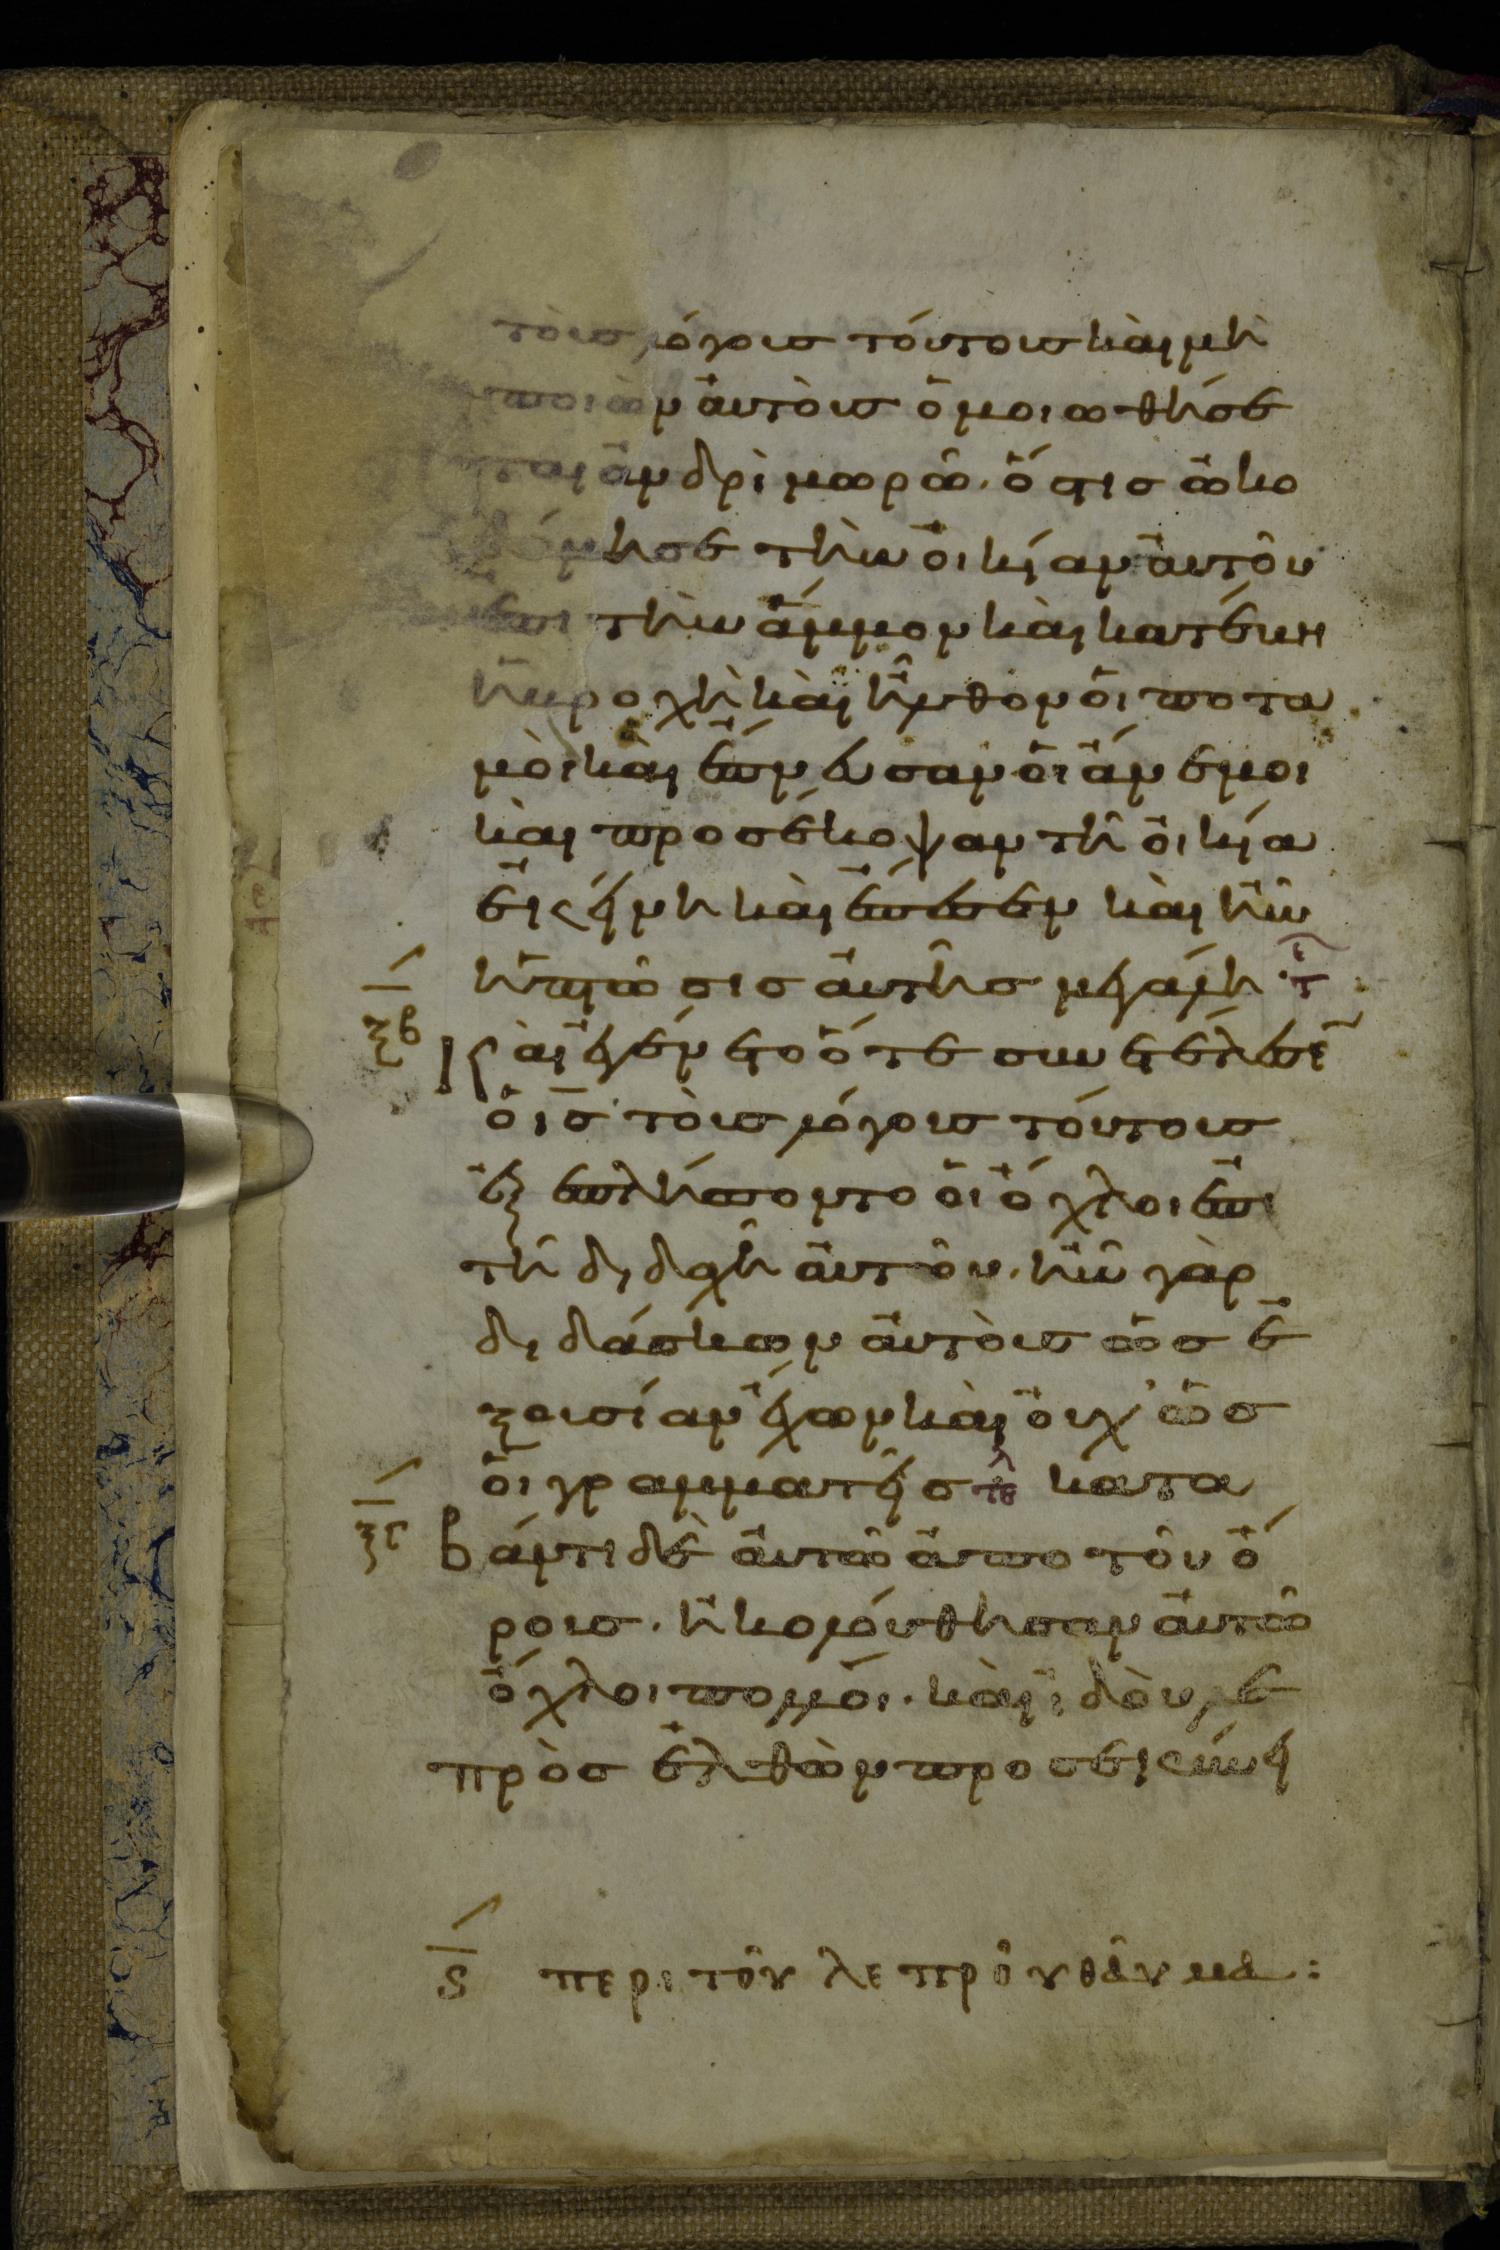 τοῖς λόγοις τούτοις καὶ μὴ
ποιῶν αὐτοὺς ὁμοιωθήσε
ται ἀνδρὶ μωρῶ. ὅστις ὠκο
δόμησε τὴν οἰκίαν αὐτοῦ
ἐπι τὴν ἄμμον καὶ κατέβη
ἡ βροχὴ καὶ ἦλθον οἱ ποτα
μοὶ καὶ ἔπνευσαν οἱ ἄνεμοι
καὶ προσέκοψαν τῆ οἰκία
ἐκείνη καὶ ἔπεσεν καὶ ἦν
ἡ πτῶσις αὐτῆς μεγάλη τ
ξβ καὶ ἐγένετο ὅτε συνετέλεσε
ὁ ις τοὺς λόγους τούτους
ἐξεπλήσσοντο οἱ ὄχλοι ἐπι
τῆ διδαχῆ αὐτοῦ. ἦν γὰρ
διδάσκων αὐτοὺς ὡς ἐ
ξουσίαν ἔχων καὶ οὐχ' ὡς
οἱ γραμματεῖς τελ κατα
ξγ βάντι δὲ αὐτῶ ἀπο τοῦ ὄ
ρους. ἠκολούθησαν αὐτῶ
ὄχλοι πολλοί. καὶ ἰδοὺ λε
πρὸς ἐλθὼν προσεκύνει
ϛ περι τοῦ λεπροῦ θαῦμα: